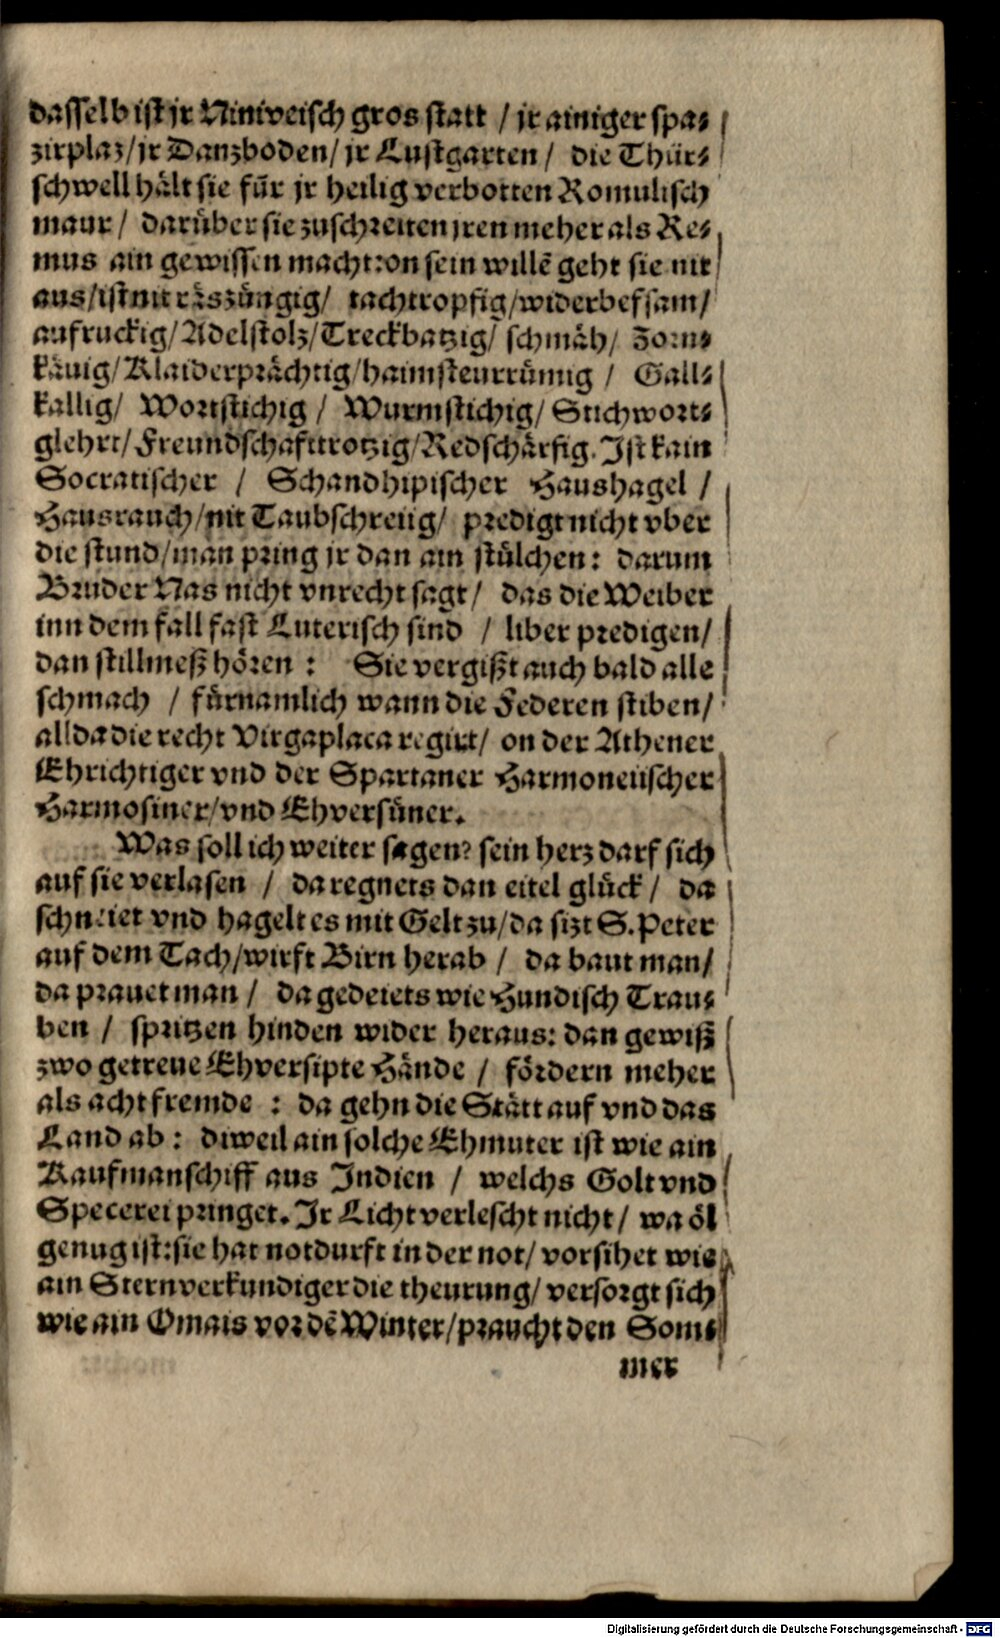 dasselb ist jr Niniveisch gros statt / jr ainiger spa⸗
zirplaz/jr Danzboden/ jr Lustgarten / die Thür⸗
schwell hält sie für jr heilig verbotten Romulisch
maur / darüber sie zuschreiten jren meher als Re⸗
mus ain gewissen macht:on sein willē geht sie nit
aus/ist nit räszüngig/ tachtropfig/widerbefsam/
aufruckig/Adelstolz/Treckbatzig/ schmäh/ Zorn⸗
käuig/Klaiderprächtig/haimsteurrümig / Gall⸗
kallig/ Wortstichig / Wurmstichig/ Stichwort⸗
glehrt/Freundschafttrotzig/Redschärfig. Ist kain
Socratischer / Schandhipischer Haushagel /
Hausrauch/nit Taubschreiig/ predigt nicht vber
die stund/man pring jr dan ain stülchen: darum
Bruder Nas nicht vnrecht sagt/ das die Weiber
inn dem fall fast Luterisch sind / liber predigen/
dan stillmeß hören : Sie vergißt auch bald alle
schmach / fürnamlich wann die Federen stiben/
allda die recht Virgaplaca regirt/ on der Athener
Ehrichtiger vnd der Spartaner Harmonetischer
Harmosiner/vnd Ehversüner.
Was soll ich weiter sagen? sein herz darf sich
auf sie verlasen / da regnets dan eitel glück / da
schneiet vnd hagelt es mit Gelt zu/da sizt S. Peter
auf dem Tach/wirft Birn herab / da baut man/
da prauet man / da gedeiets wie Hundisch Trau⸗
ben / spritzen hinden wider heraus: dan gewiß
zwo getreue Ehversipte Hände / fördern meher
als acht fremde : da gehn die Stätt auf vnd das
Land ab : diweil ain solche Ehmuter ist wie ain
Kaufmanschiff aus Indien / welchs Golt vnd
Specerei pringet. Ir Licht verlescht nicht / wa öl
genug ist:sie hat notdurft in der not/ vorsihet wie
ain Sternverkundiger die theurung/ versorgt sich
wie ain Omais vor dē Winter/praucht den Som⸗
mer
Digitalisierung gefördert durch die Deutsche Forschungsgemeinschaft - DFG